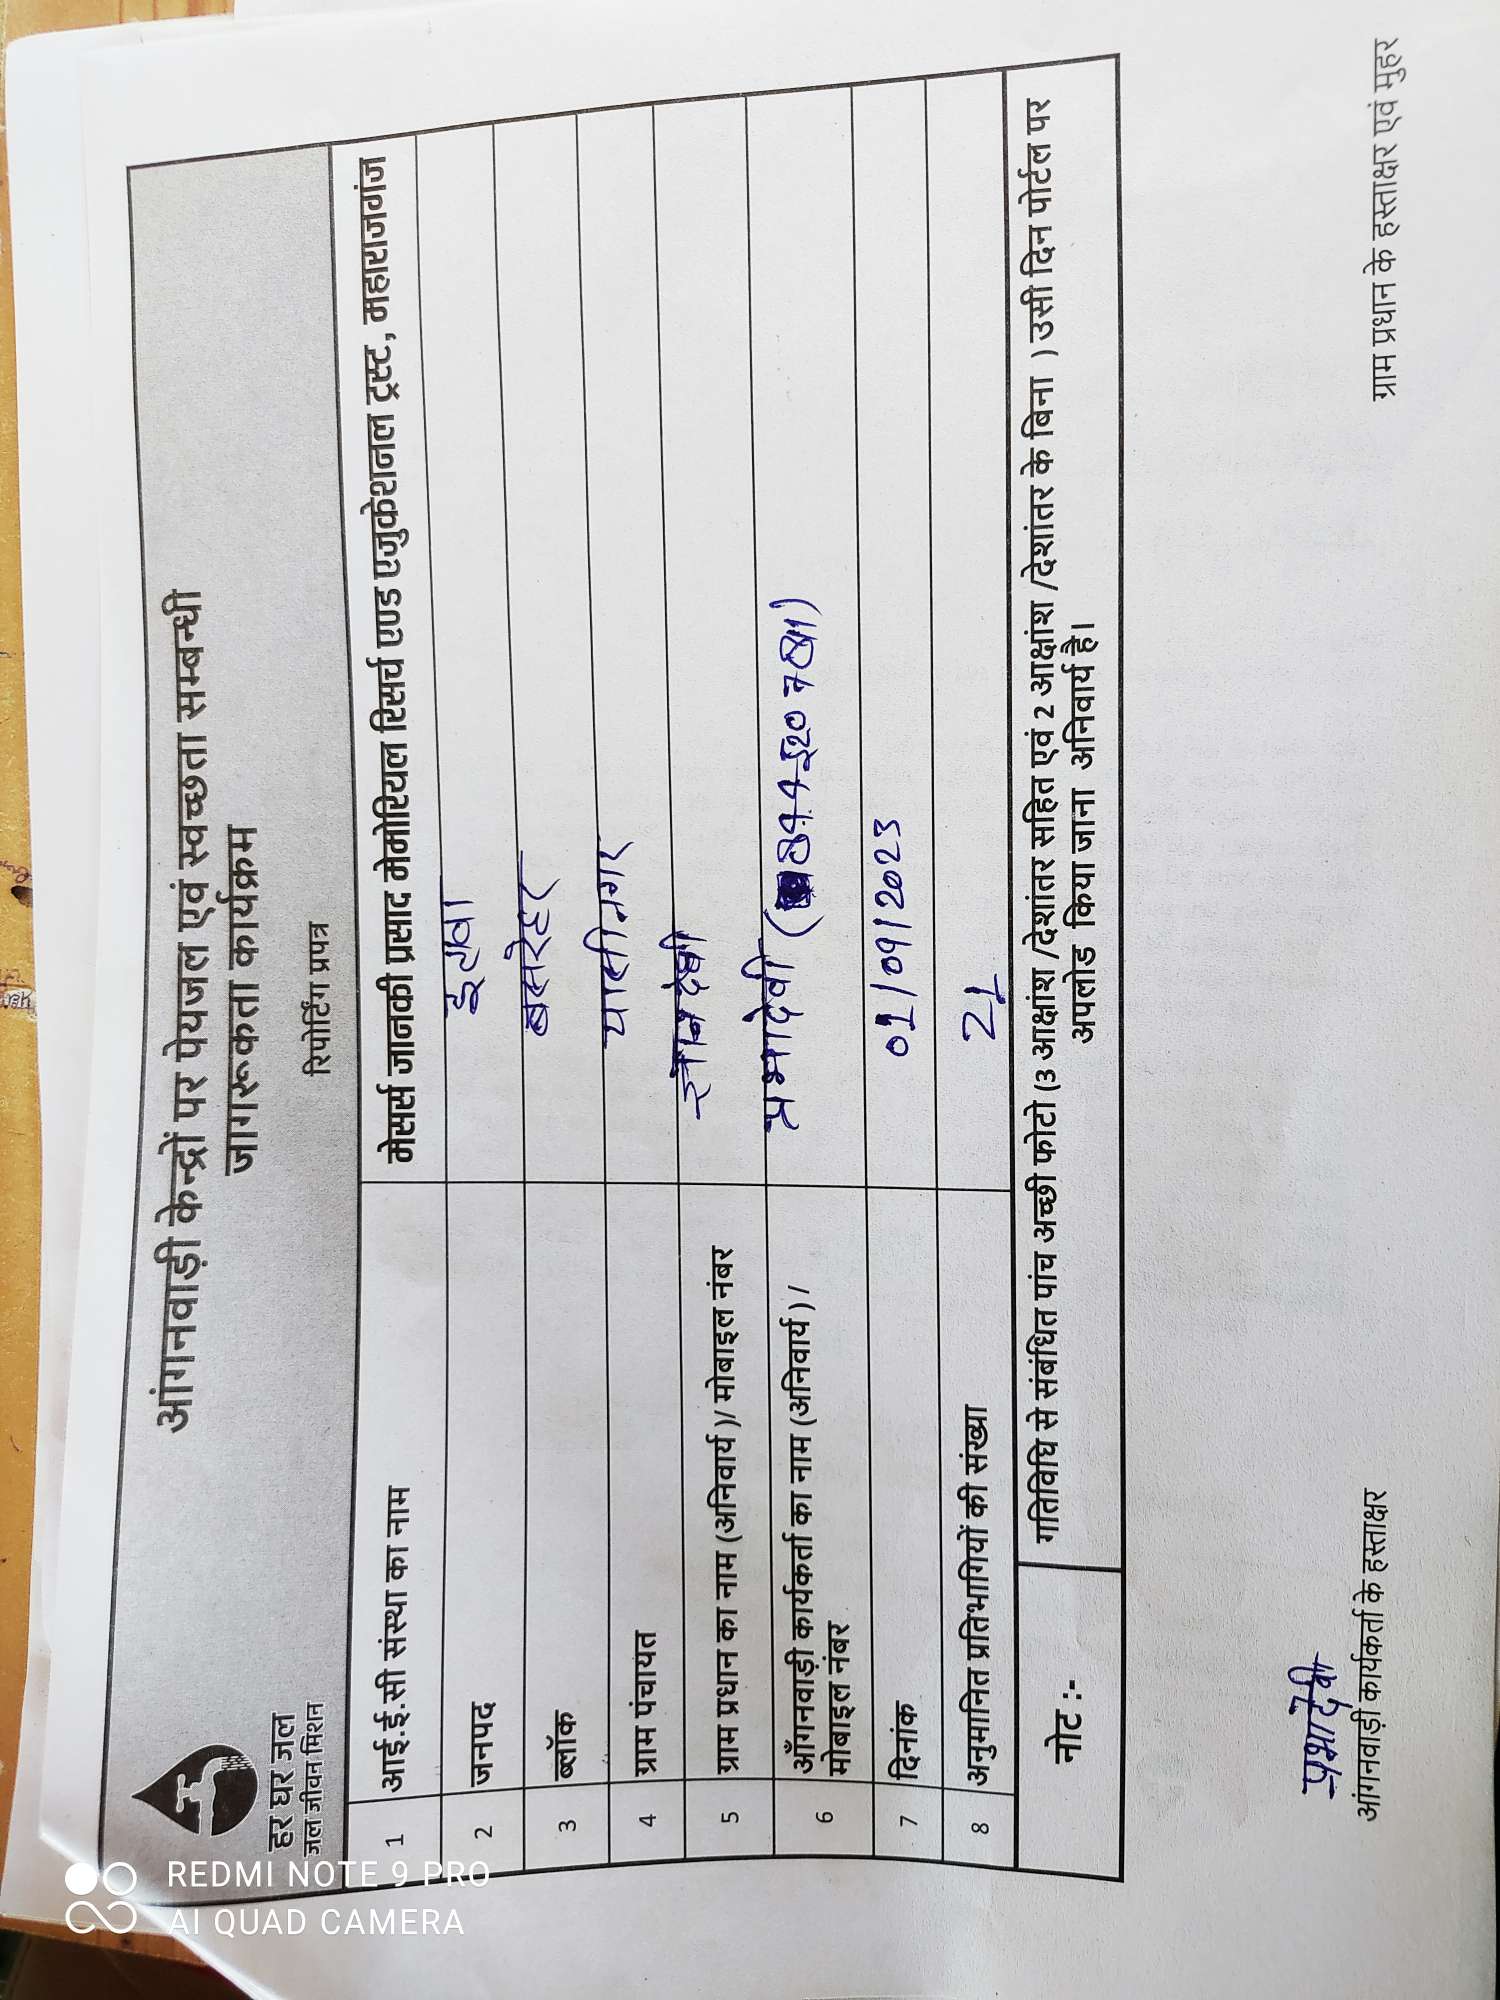 हर घर जल
जल जीवन मिशन
आंगनवाड़ी केन्द्रों पर पेयजल एवं स्वच्छता सम्बन्धी
जागरूकता कार्यक्रम
रिपोर्टिंग प्रपत्र
1 आई.ई.सी संस्था का नाम मेसर्स जानकी प्रसाद मेमोरियल रिसर्च एण्ड एजुकेशनल ट्रस्ट, महाराजगंज
2 जनपद इटावा
3 ब्लॉक बसरेहर
4 ग्राम पंचायत
5 ग्राम प्रधान का नाम (अनिवार्य)/ मोबाइल नंबर
6 आँगनवाड़ी कार्यकर्ता का नाम (अनिवार्य) / प्रभादेवी
मोबाइल नंबर
7 दिनांक 01/09/2023
8 अनुमानित प्रतिभागियों की संख्या 21
नोट :- गतिविधि से संबंधित पांच अच्छी फोटो (3 आक्षांश /देशांतर सहित एवं 2 आक्षांश /देशांतर के बिना ) उसी दिन पोर्टल पर
अपलोड किया जाना अनिवार्य है।
प्रभादेवी
आंगनवाड़ी कार्यकर्ता के हस्ताक्षर ग्राम प्रधान के हस्ताक्षर एवं मुहर
REDMI NOTE 9 PRO
AI QUAD CAMERA